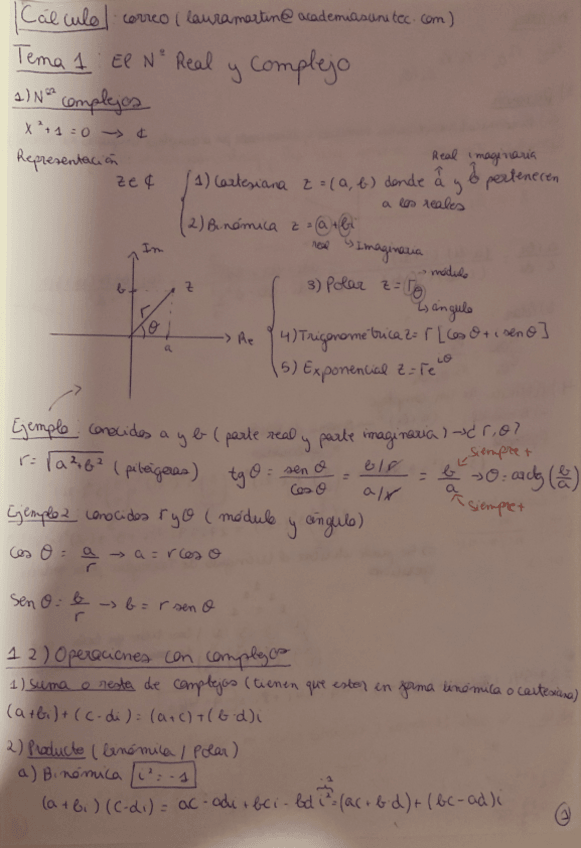 Cálculo: correo (lauramartin@academiasunitec.com)
Tema 1: El Nº Real y Complejo
1) Nºs complejos
x² + 1 = 0 → ₵
Representación
Real imaginaria
z ∈ ₵ 1) Cartesiana z = (a, b) donde a y b pertenecen
a los reales
2) Binómica z = a + bi
real → Imaginaria
Im
b z r θ a Re
3) Polar z = r_θ → módulo
↳ ángulo
4) Trigonométrica z = r [cos θ + i sen θ]
5) Exponencial z = r e^{iθ}
Ejemplo: conocidos a y b (parte real y parte imaginaria) → ¿r, θ?
r = √(a² + b²) (pitágoras) tg θ = sen θ / cos θ = (b/r) / (a/r) = b/a → θ = arctg (b/a)
siempre +
siempre +
Ejemplo 2 conocidos r y θ (módulo y ángulo)
cos θ = a/r → a = r cos θ
sen θ = b/r → b = r sen θ
1 2) Operaciones con complejos
1) Suma o resta de complejos (tienen que estar en forma binómica o cartesiana)
(a+bi) + (c-di) = (a+c) + (b-d)i
2) Producto (binómica / Polar)
a) Binómica i² = -1
(a+bi)(c-di) = ac - adi + bci - bd i² = (ac + b·d) + (bc - ad)i
-1
1